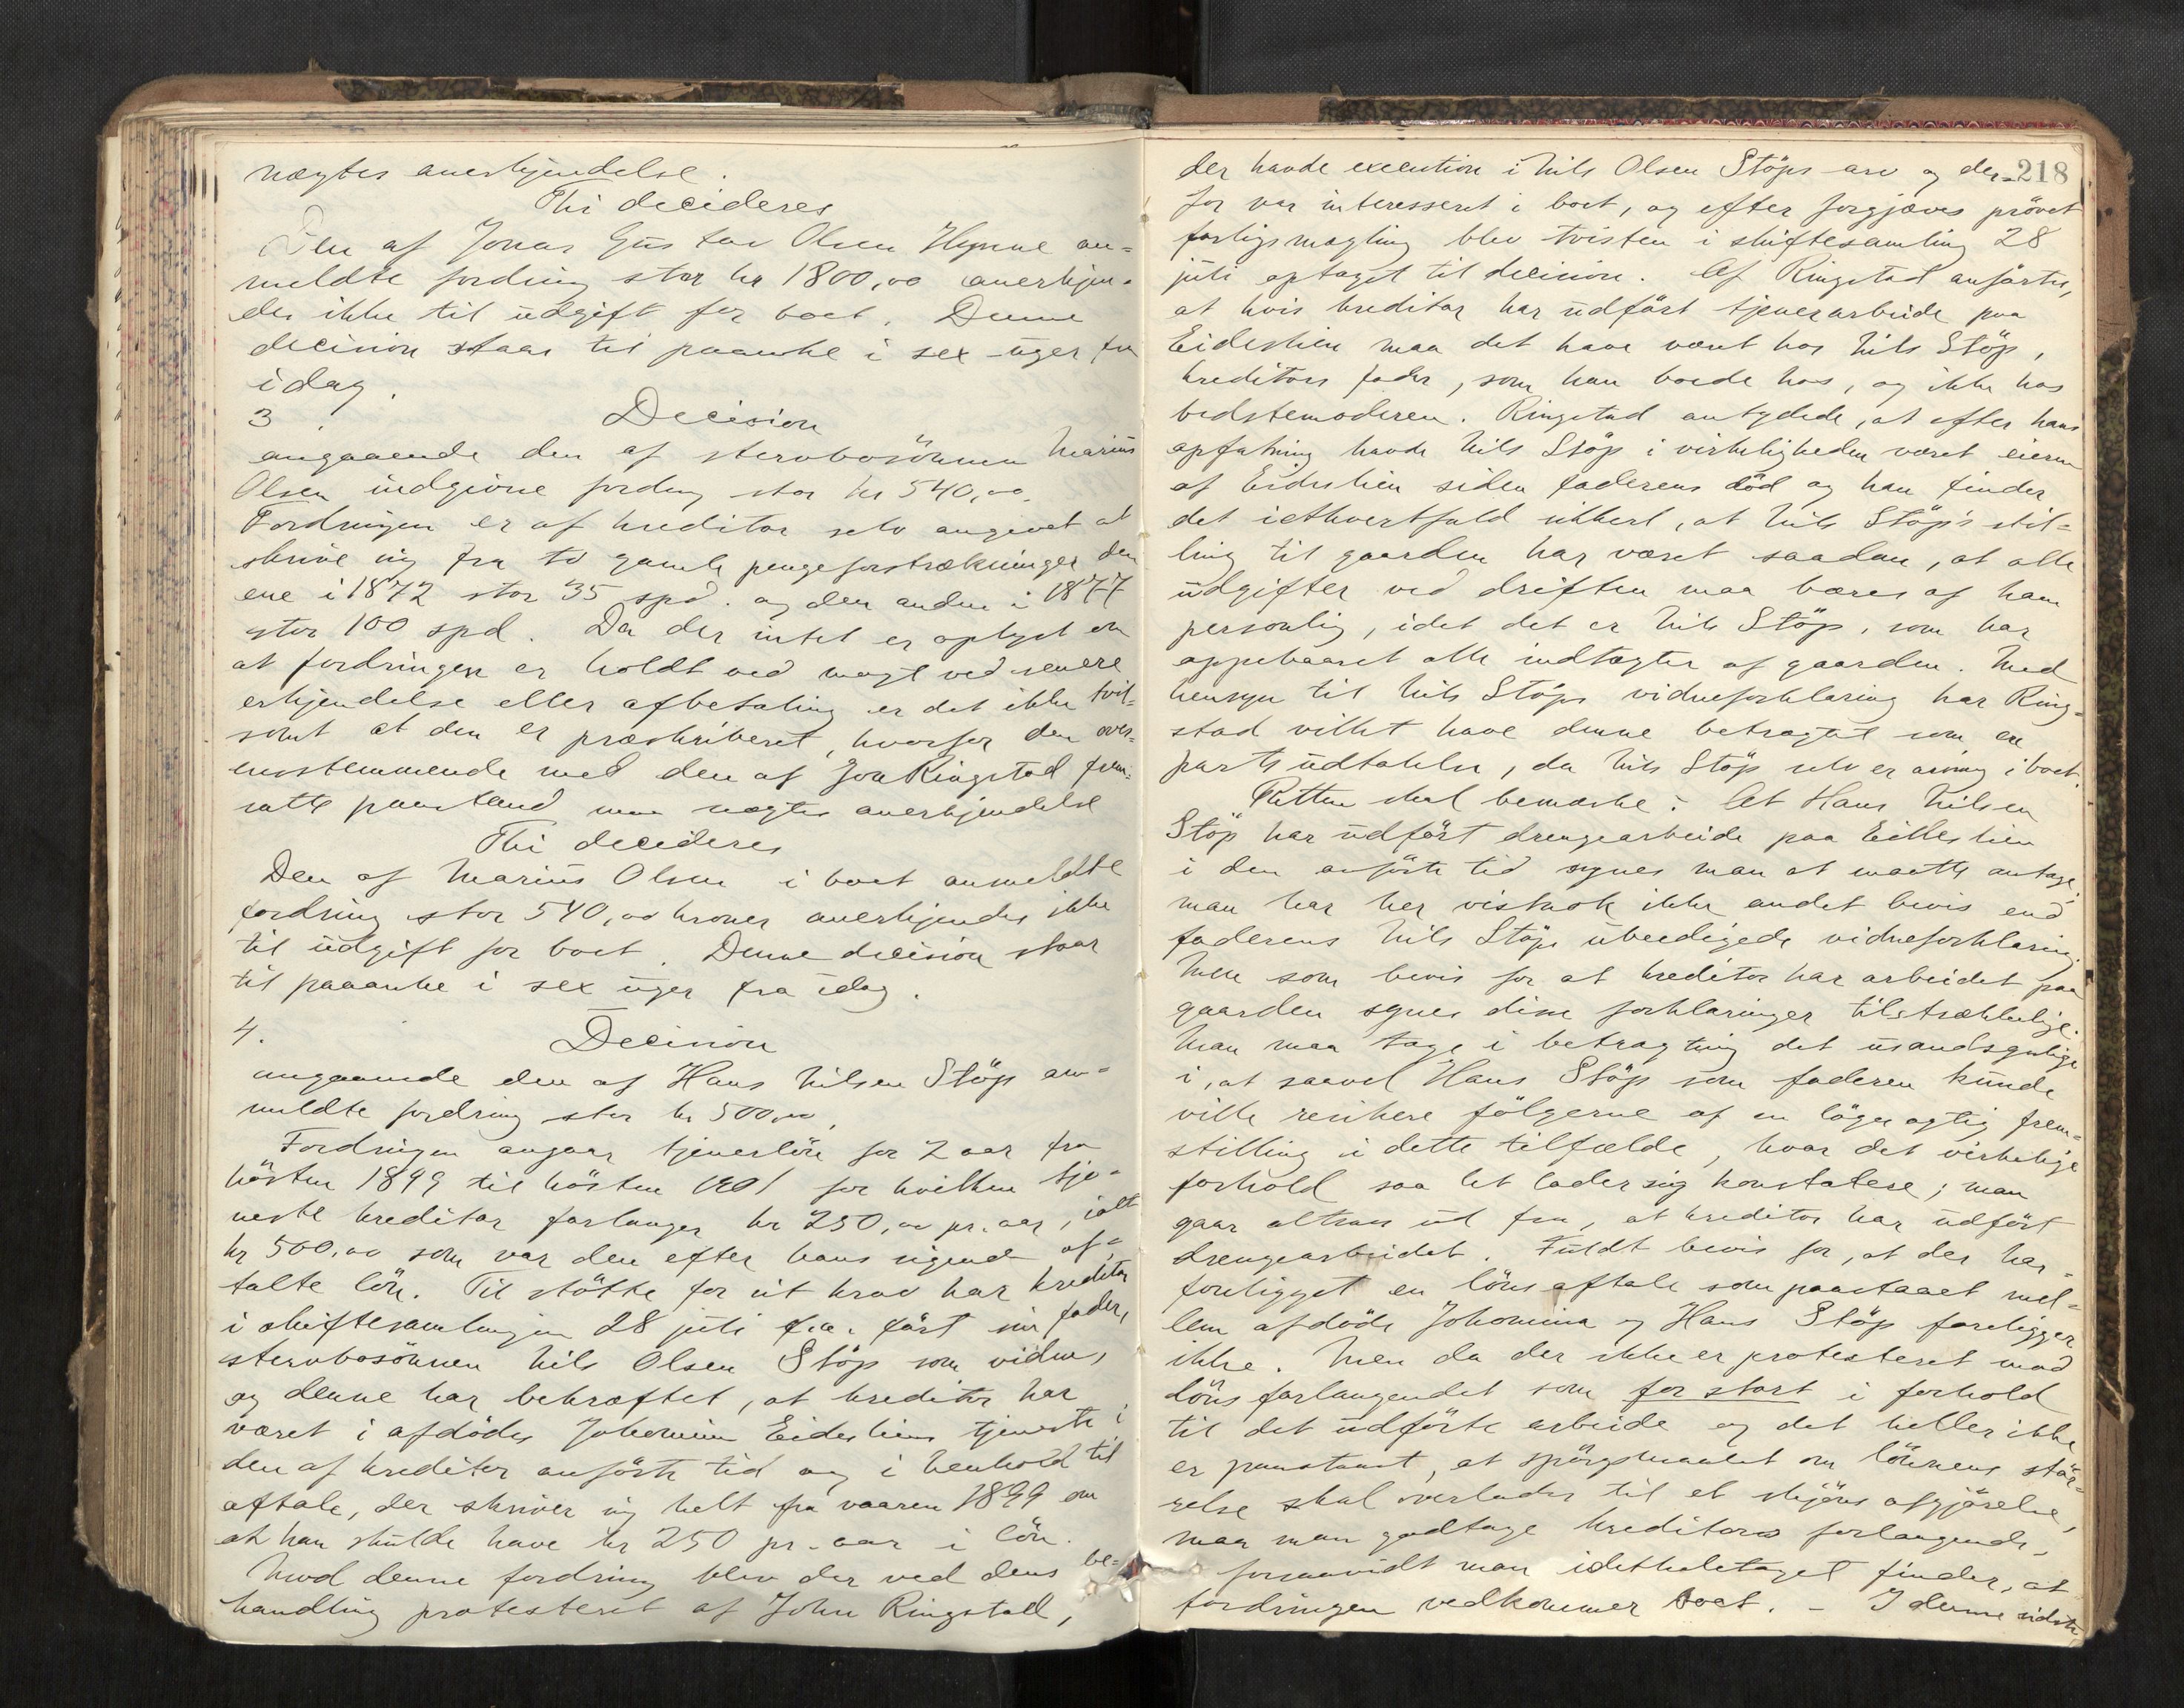 nægtes anerkjendelse.
Thi decideres
Den af Jonas Gustav Olsen Hynne an-
meldte fordring stor kr 1800,00 anerkjen-
des ikke til udgift for boet. Denne
decision staar til paaanke i sex uger fra
idag.
3. Decision
angaaende den af stervbosönnen Marius
Olsen indgivne fordring stor kr 540,00.
Fordringen er af kreditor selv angivet at
skrive sig fra to gamle pengeforstrækninger den
ene i 1872 stor 35 spd. og den anden i 1877
stor 100 spd. Da der intet er oplyst om
at fordringen er holdt ved magt ved senere
erkjendelse eller afbetaling er det ikke tvil-
somt at den er præskriberet, hvorfor den over-
ensstemmende med den af Jon Ringstad frem-
satte paastand maa nægtes anerkjendelse
Thi decideres
Den af Marius Olsen i boet anmeldte
fordring stor 540,00 kroner anerkjendes ikke
til udgift for boet. Denne decision staar
til paaanke i sex uger fra idag.
4. Decision
angaaende den af Hans Nilsen Stöp an-
meldte fordring stor kr 500,00.
Fordringen angaar tjenerlön for 2 aar fra
hösten 1899 til hösten 1901 for hvilken tje-
neste kreditor forlanger kr 250,00 pr. aar, ialt
kr 500,00 som var den efter hans sigende af-
talte lön. Til stötte for sit krav har kreditor
i skiftesamlingen 28 juli f.a. fört sin fader,
stervbosönnen Nils Olsen Stöp som vidne,
og denne har bekræftet, at kreditor har
været i afdödes Johomina Eidesliens tjeneste i
den af kreditor anförte tid og i henhold til
aftale, der skriver sig helt fra vaaren 1899 om
at han skulde have kr 250 pr. aar i lön.
Mod denne fordring blev der ved dens be-
handling protesteret af John Ringstad,
218
der havde execution i Nils Olsen Stöps arv og der-
for var interesseret i boet, og efter forgjæves prövet
forligsmægling blev tvisten i skiftesamling 28
juli optaget til decision. Af Ringstad anförtes,
at hvis kreditor har udfört tjenerarbeide paa
Eideslien maa det have været hos Nils Stöp,
kreditors fader, som han boede hos, og ikke hos
bedstemoderen. Ringstad antydede, at efter hans
opfatning havde Nils Stöp i virkeligheden været eieren
af Eideslien siden faderens död og han finder
det iethvertfald sikkert, at Nils Stöp's stil-
ling til gaarden har været saadan, at alle
udgifter ved driften maa bæres af ham
personlig, idet det er Nils Stöp, som har
oppebaaret alle indtægter af gaarden. Med
hensyn til Nils Stöps vidneforklaring har Ring-
stad villet have denne betragtet som en
parts udtalelse, da Nils Stöp selv er arving i boet.
Retten skal bemærke: At Hans Nilsen
Stöp har udfört drengearbeide paa Eideslien
i den anförte tid synes man at maatte antage;
man har her vistnok ikke andet bevis end
faderens Nils Stöps ubeedigede vidneforklaring.
Men som bevis for at kreditor har arbeidet paa
gaarden synes disse forklaringer tilstrækkelige.
Man maa tage i betragtning det usandsynlige
i, at saavel Hans Stöp som faderen kunde
ville resikere fölgerne af en lögnagtig frem-
stilling i dette tilfælde, hvor det virkelige
forhold saa let lader sig konstatere; man
gaar altsaa ut fra, at kreditor har udfört
drengearbeidet. Fuldt bevis for, at der har
foreligget en lönsaftale som paastaaet mel-
lem afdöde Johomina og Hans Stöp foreligger
ikke. Men da der ikke er protesteret mod
lönsforlangendet som for stort i forhold
til det udförte arbeide og det heller ikke
er paastaaet, at spörgsmaalet om lönnens stör-
relse skal overlades til et skjöns afgjörelse,
maa man godtage kreditors forlangende,
forsaavidt man idetheletaget finder, at
fordringen vedkommer boet. - I denne sidste